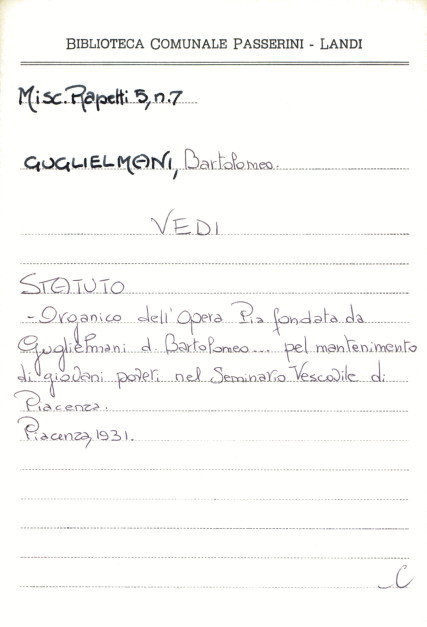 BIBLIOTECA COMUNALE PASSERINI - LANDI
Misc. Rapetti 5, n. 7
GUGLIELMANI, Bartolomeo.
VEDI
STATUTO
- Organico dell'Opera Pia fondata da
Guglielmani d. Bartolomeo... pel mantenimento
di giovani poveri nel Seminario Vescovile di
Piacenza.
Piacenza, 1931.
C